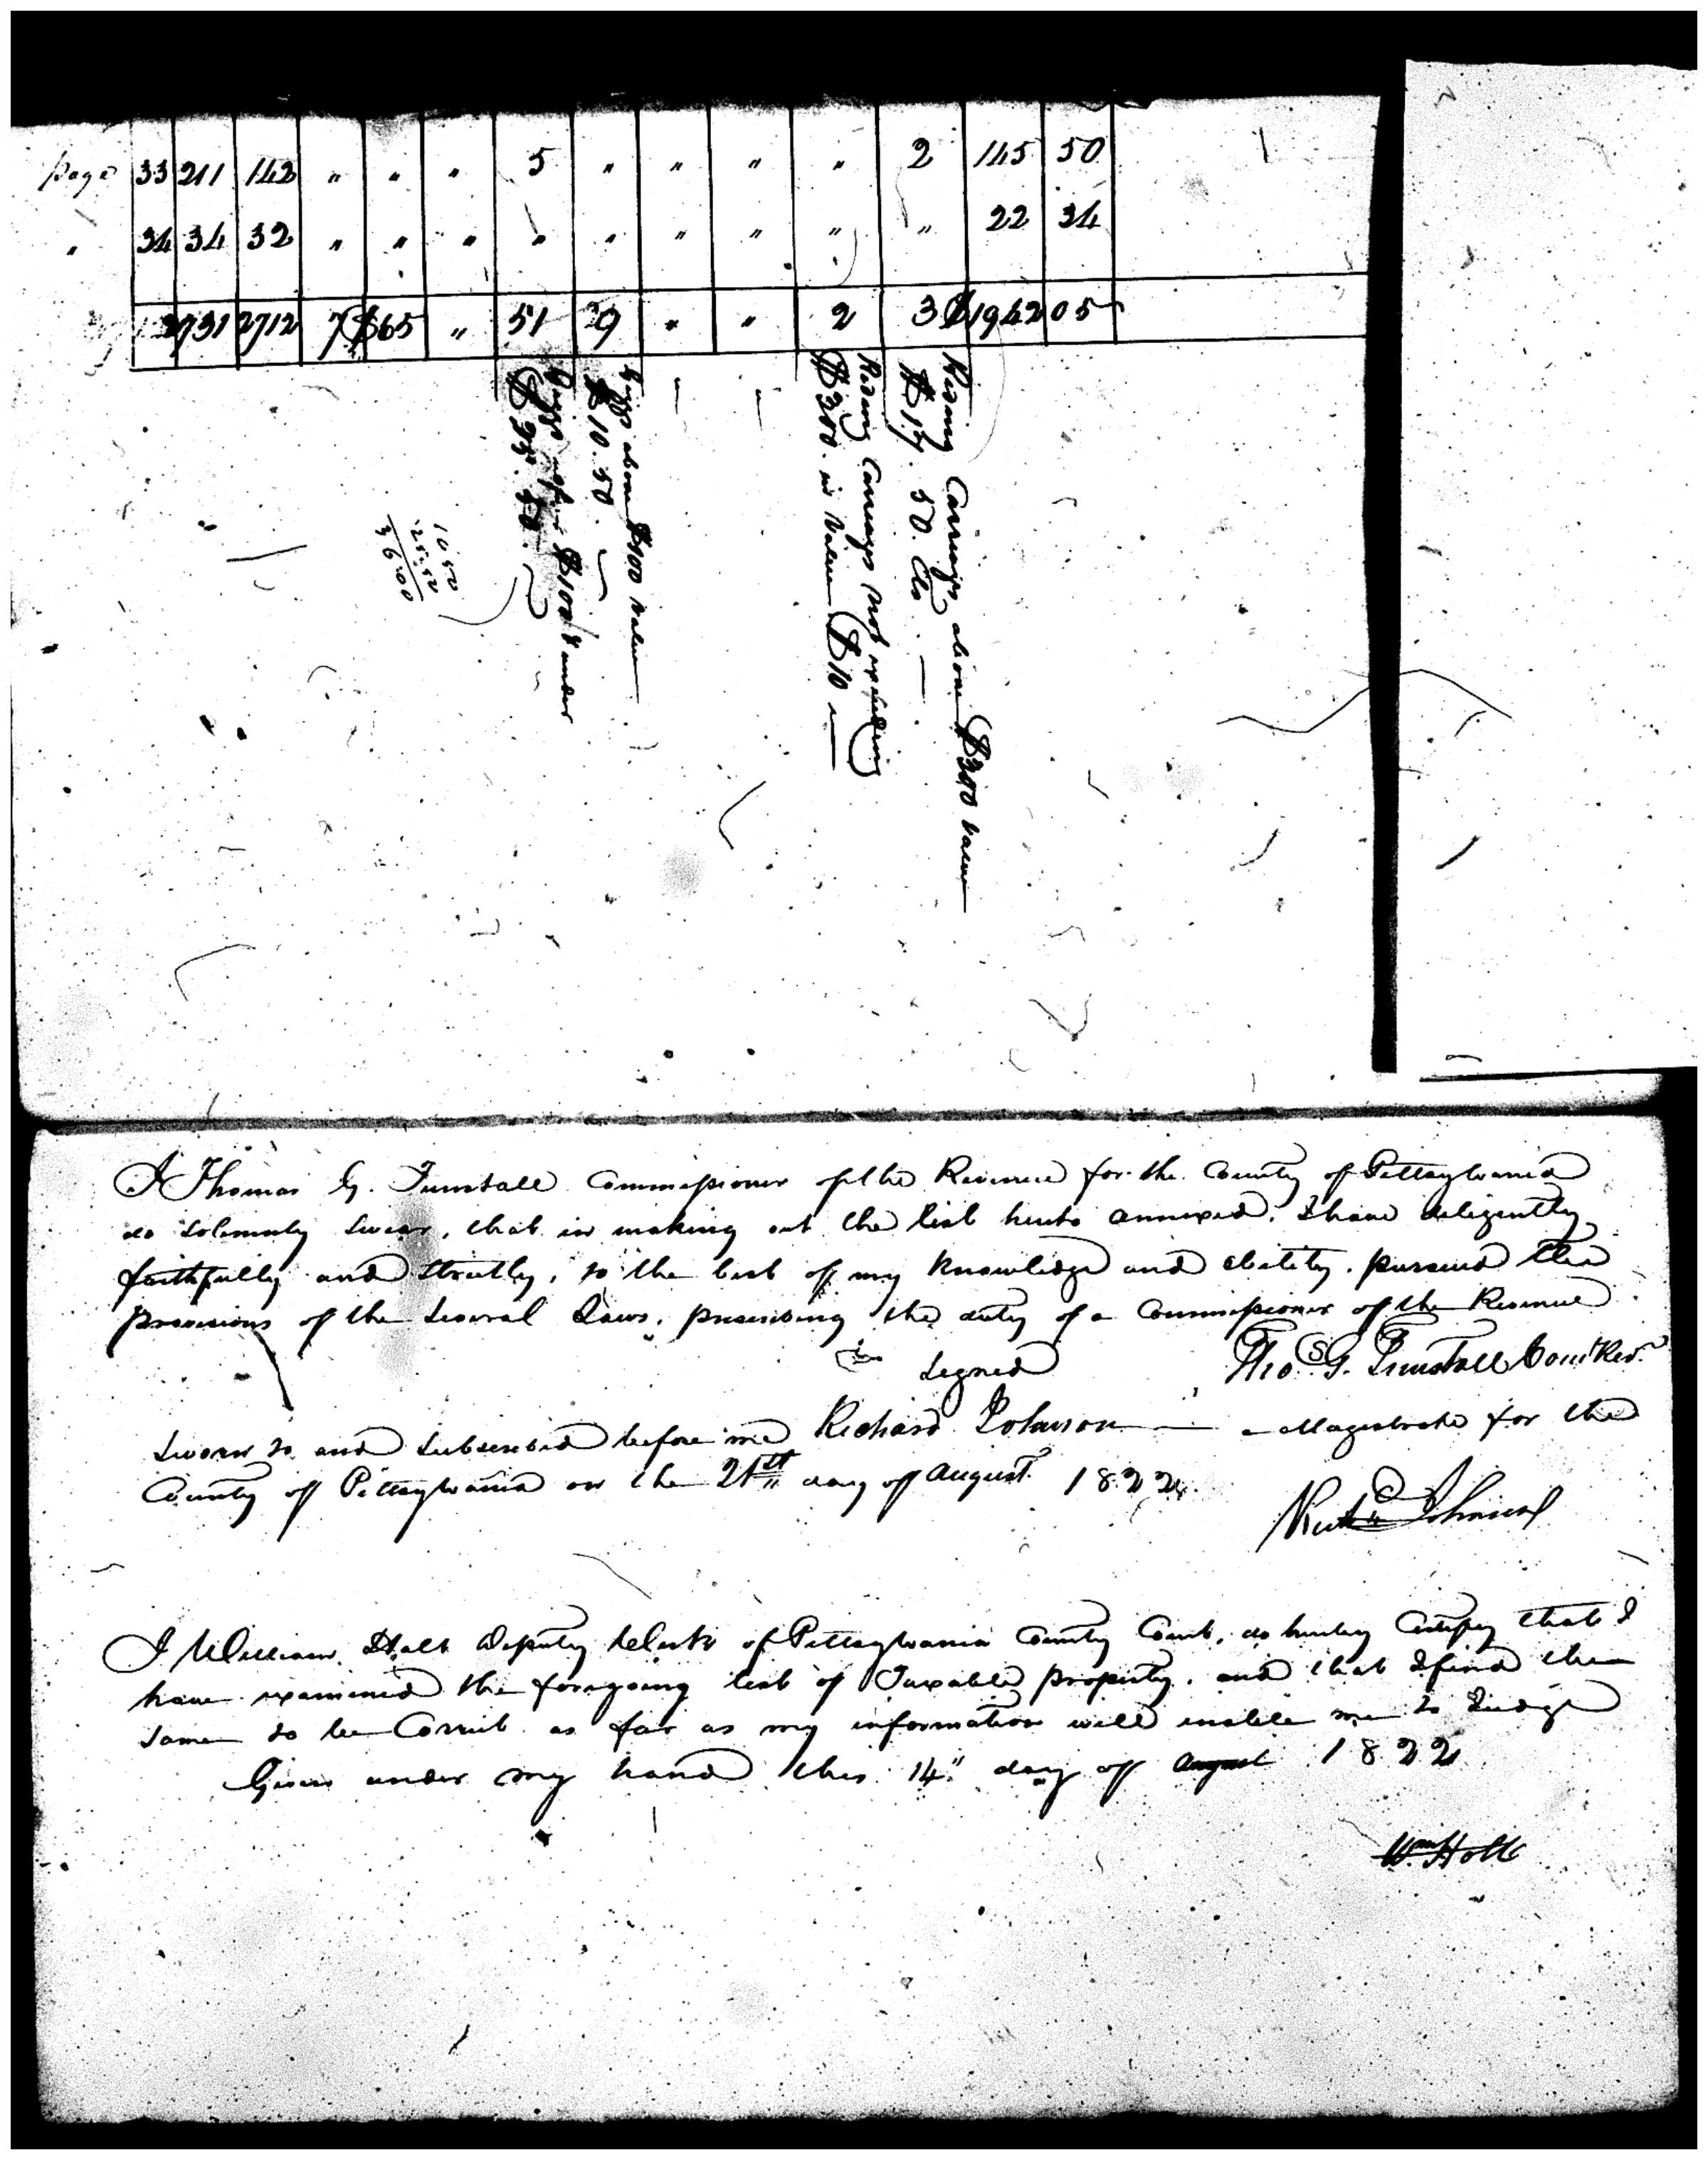 page 33 211 142 " " " 5 " " " " 2 145 50
" 34 34 32 " " " " " " " " " 22 34
2731 2712 7 $65 " 51 29 " " 2 3 $1942 05
Riding Carriages above $200 value
$17. 50. Cts.
Riding Carriages not exceeding
$200. in Value $10
Giggs above $100 value
$10. 50.
Giggs of $100 & under
$25. 50.
10 50
25.50
36.00
I Thomas G. Tunstall Commissioner of the Revenue for the County of Pittsylvania
do Solemnly Swear, that in making out the list hereto annexed, I have deligently
faithfully and Strictly, to the best of my Knowledge and ability, pursued the
provisions of the Several Laws, prescribing the duty of a Commissioner of the Revenue
Signed Thos. G. Tunstall Com Rev.
Sworn to and Subscribed before me Richard Johnson a Magistrate for the
County of Pittsylvania on the 21st day of August 1822.
Richd Johnson
I William Holt Deputy Clerk of Pittsylvania County Court, do hereby Certify that I
have examined the foregoing list of Taxable property, and that I find the
Same to be Correct as far as my information will enable me to Judge
Given under my hand this 14" day of August 1822
Wm Holt